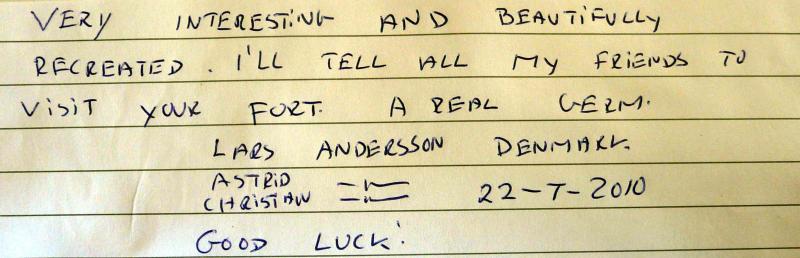 VERY INTERESTING AND BEAUTIFULLY
RECREATED. I'LL TELL ALL MY FRIENDS TO
VISIT YOUR FORT. A REAL GERM.
LARS ANDERSSON DENMARK.
ASTRID
CHRISTIAN —"— 22-7-2010
GOOD LUCK!